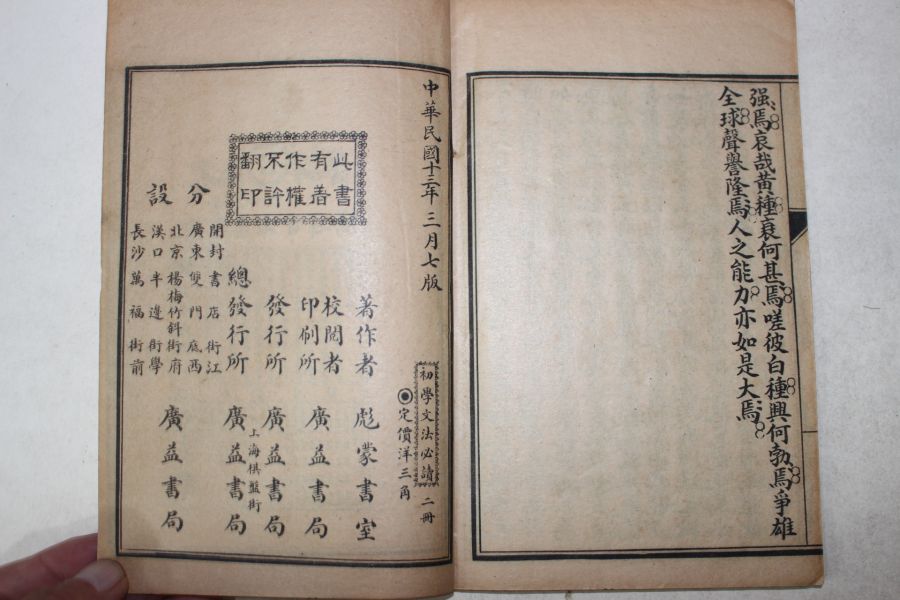 强焉哀哉黃種衰何甚焉嗟彼白種興何勃焉爭雄
全球聲譽隆焉人之能力亦如是大焉
中華民國十三年三月七版
初學文法必讀 二冊
◉定價洋三角
此書
有著
作權
不許
翻印
著作者 彪蒙書室
校閱者
印刷所 廣益書局
發行所 廣益書局
上海棋盤街
總發行所 廣益書局
分設
開封書店街江
廣東雙門底西
北京楊梅竹斜街府
漢口半邊街學
長沙萬福街前
廣益書局